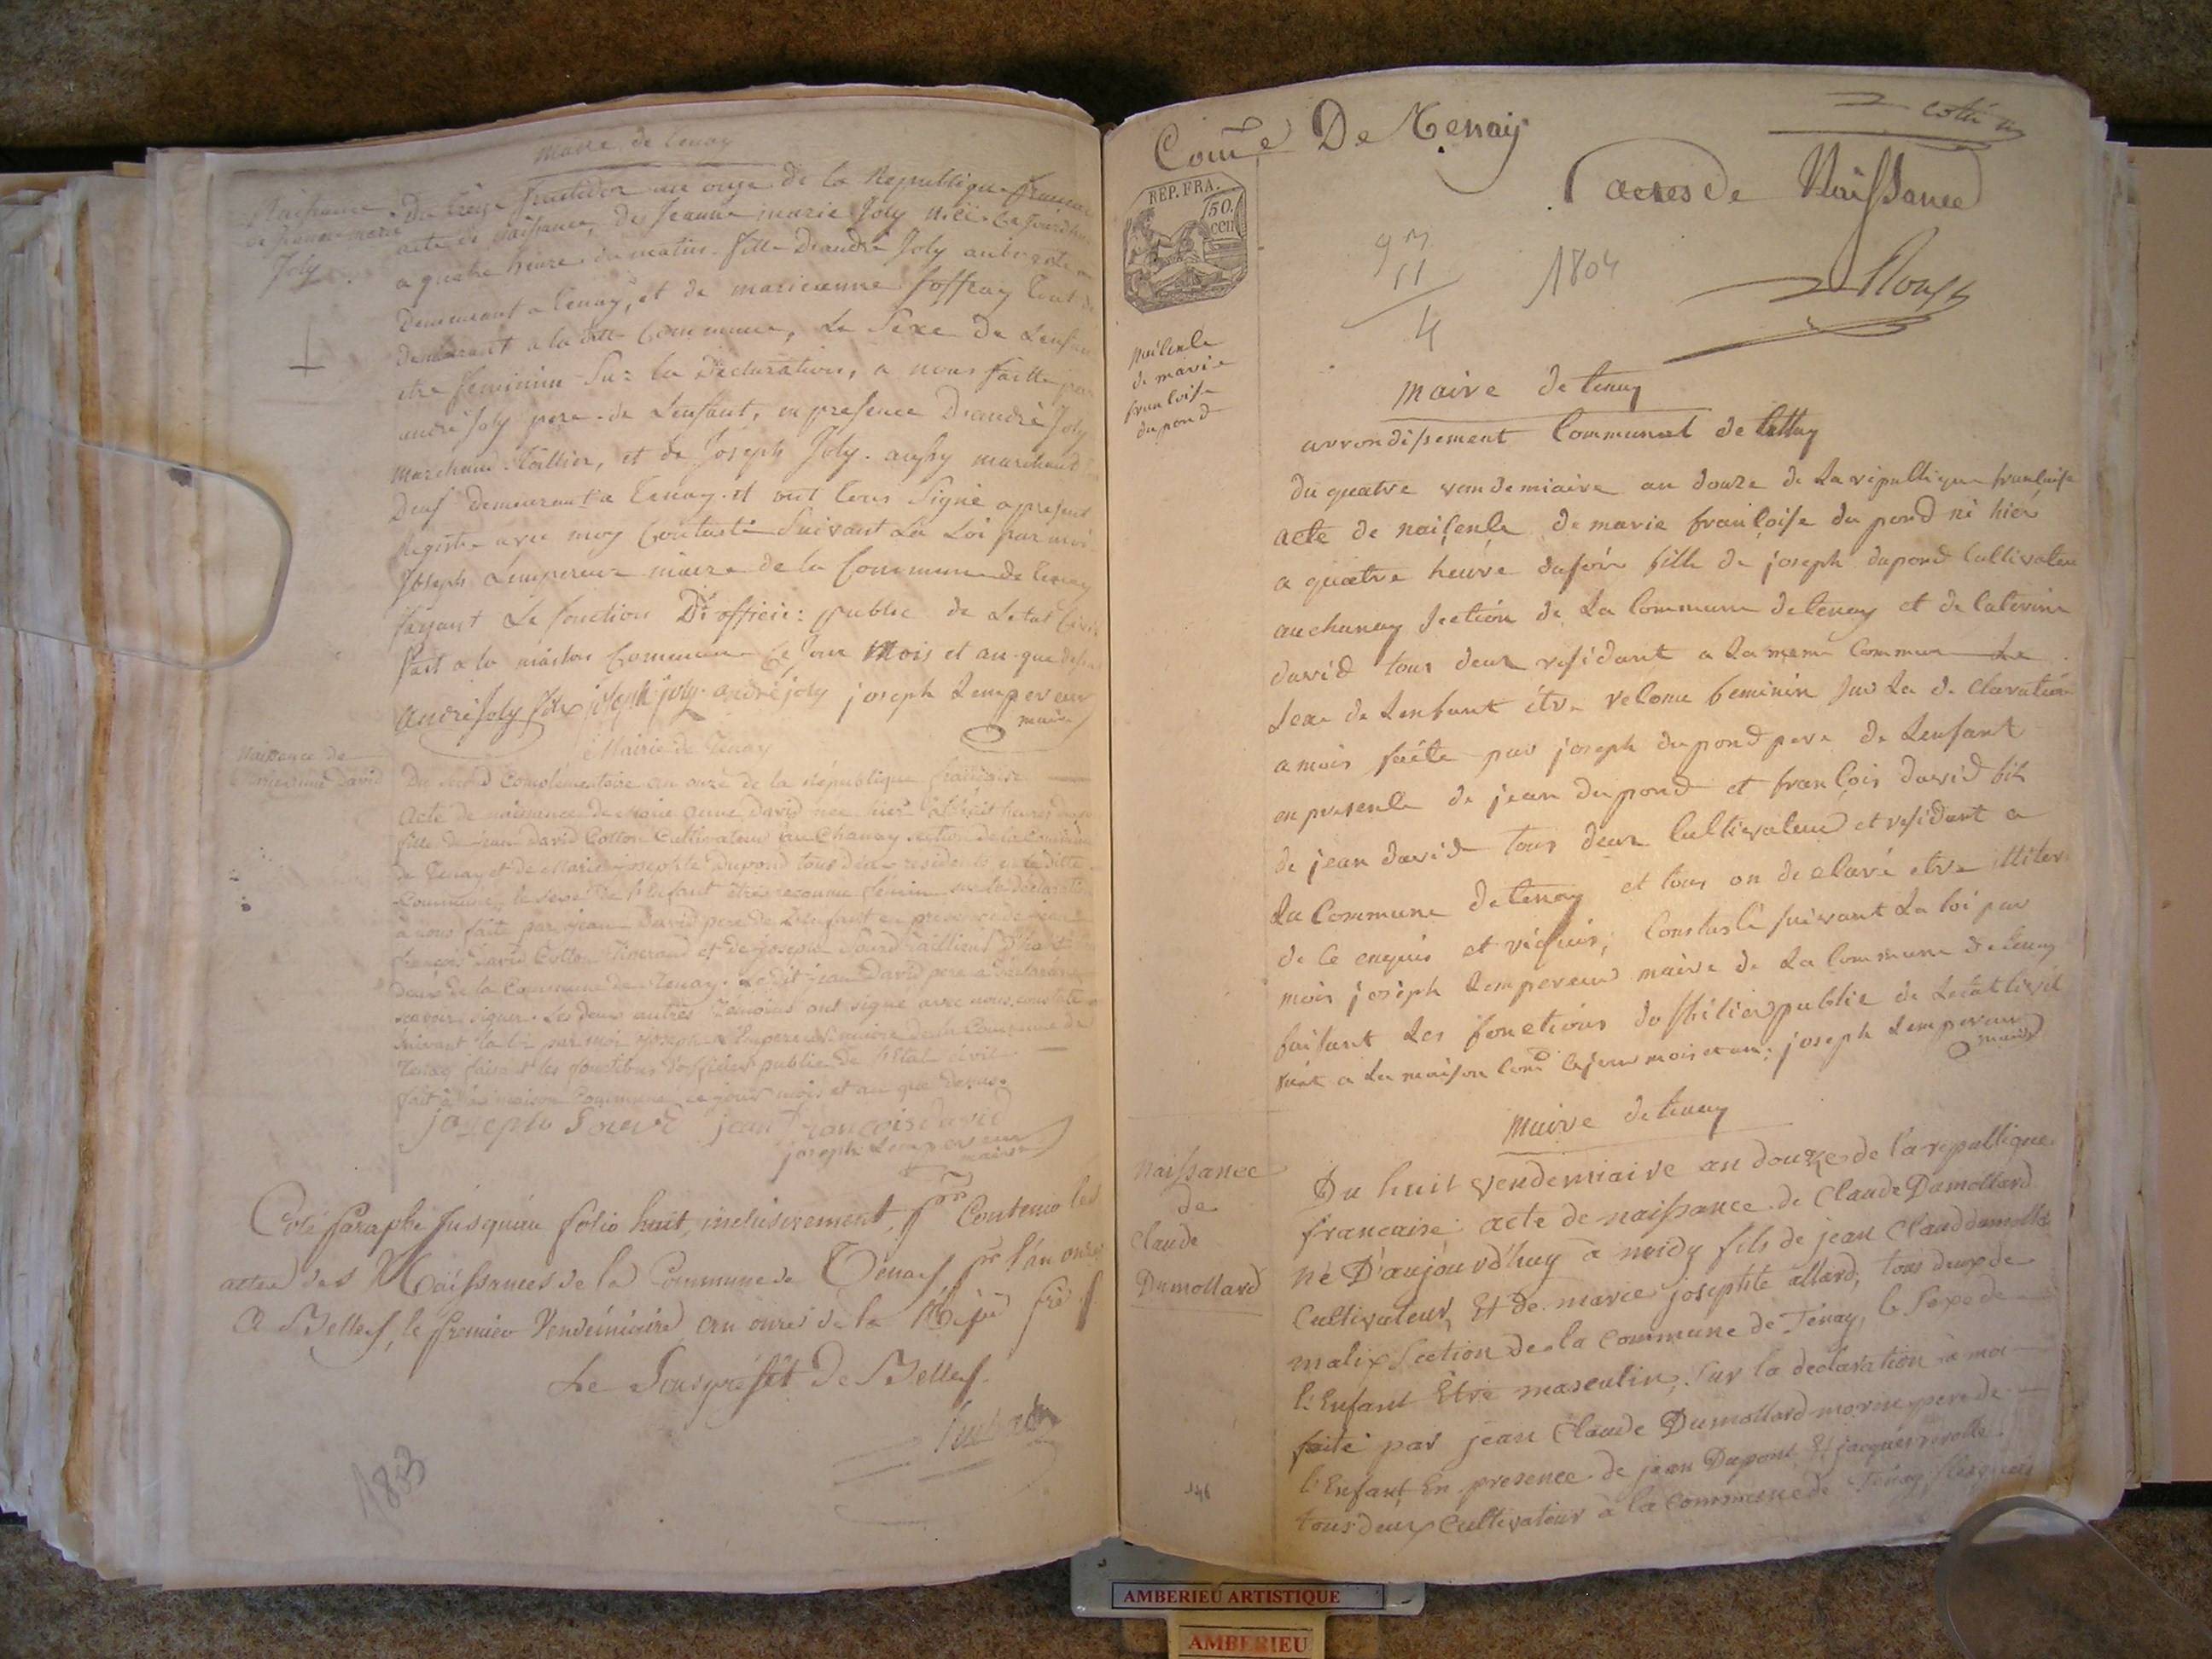 Maire de tenay
Naissance
de jeanne marie
Joly
Du treize fructidor an onze de la Republique francai
acte de naissance, de Jeanne marie Joly née ce jourdhuy
a quatre heure du matin fille Dandré Joly aubergiste
Demeurant a tenay, et de marieanne Joffray tout de
demeurant a la ditte Commune, Le Sexe de Lenfan
etre feminin Sur la Declaration, a nous faitte par
andré Joly pere de Lenfant, en presence Dandré Joly
marchand Toillier, et de Joseph Joly aussy marchand
Deuf demeurant a tenay et ont tous Signé a present
Registre avec moy Constaté Suivant La Loi par moi
Joseph Lempereur maire de la Commune de tenay
faisant Le fonction D'officier public de Letat Civil
fait a la maison Commune Ce Jour Mois et an que dessu
andré joly joseph joly andré joly joseph Lempereur
maire
Mairie de Tenay
Naissance de
Marieanne David
Du second Complémentaire an onze de la République française
Acte de naissance de Marie anne David née hier à huit heures du
fille de Jean David Cotton Cultivateur au Chanay section de la Commune
de Tenay et de Marie josephte Dupond tous deux résidents à la ditte
Commune, le sexe de l'Enfant être reconnu féminin sur la déclarati
à nous faite par jean David pere de L'enfant en presence de jean
françois David Cotton Tisserand et de joseph
deux de la Commune de Tenay. Ledit jean David pere a déclaré ne
scavoir signer. Les deux autres Temoins ont signé avec nous. constaté
suivant la loi par moi joseph Lempereur maire de la Commune de
Tenay faisant les fonctions d'officier public de l'état civil
fait à la maison Commune ce jour mois et an que dessus.
joseph jean francois david
joseph Lempereur
maire
Coté & Paraphé jusqu'au folio huit, inclusivement, pr Contenir les
actes des Naissances de la Commune de Tenay, pr l'an onze
A Belley, le premier Vendémiaire an onze de la Rép. frse
Le Sousprefet De Belley
1803
Come De Tenay
coté un
Actes de Naissance
REP. FRA.
50.
cen
93
11
4
1804
naisenle
de marie
francoise
dupond
maire de tenay
arrondissement Communal de belley
du quatre vandemiaire an douze de La republique francaise
acte de naisenle de marie francoise du pond né hiér
a quatre heure dusoir fille de joseph dupond Cultivateu
au chanay section de La Commune detenay et de Caterine
david tous deux residant a La meme Commun Le
sexe de Lenfant étre reConu feminin sur La de claration
a mois faite par joseph dupond pere de Lenfant
en presenle de jean dupond et francois david fils
de jean david tous deux Cultivateur et residant a
La Commune detenay et tous on de claré etre illiter
de ce enquis et réquis, Constaté suivant La loi par
mois joseph Lempereur maire de La Commune de tenay
faisant Les fonctions dofficier public de Letat Civil
fait a La maison Comd Cejour mois et an: joseph Lempereur
maire
maire detenay
Naissance
de
Claude
Dumollard
Du huit vendemiaire an douze de la republique
francaise: acte de naissance de Claude Dumollard
né D'aujourd'huy à midy fils de jean Claud dumolla
Cultivateur, Et de marie josephte allard, tous deux de
malix Section de la commune de Ténay, le Sexe de
l'Enfant Etre masculin, Sur la declaration à moi
faite par jean Claude Dumollard meme pere de
l'Enfant En presence de jean Dupont Et jacques
tous deux Cultivateur à la Commune de Ténay, lesquels
146
AMBERIEU ARTISTIQUE
AMBERIEU